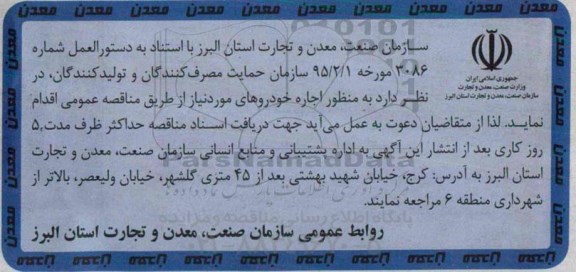 جمهوری اسلامی ایران
وزارت صنعت، معدن و تجارت
سازمان صنعت، معدن و تجارت استان البرز
سازمان صنعت، معدن و تجارت استان البرز با استناد به دستورالعمل شماره
۳۰۸۶ مورخه ۹۵/۲/۱ سازمان حمایت مصرف‌کنندگان و تولیدکنندگان، در
نظر دارد به منظور اجاره خودروهای موردنیاز از طریق مناقصه عمومی اقدام
نمایید. لذا از متقاضیان دعوت به عمل می‌آید جهت دریافت اسناد مناقصه حداکثر ظرف مدت ۵
روز کاری بعد از انتشار این آگهی به اداره پشتیبانی و منابع انسانی سازمان صنعت، معدن و تجارت
استان البرز به آدرس: کرج، خیابان شهید بهشتی بعد از ۴۵ متری گلشهر، خیابان ولیعصر، بالاتر از
شهرداری منطقه ۶ مراجعه نمایند.
روابط عمومی سازمان صنعت، معدن و تجارت استان البرز
ParsNamadData
پایگاه اطلاع رسانی مناقصه و مزایده